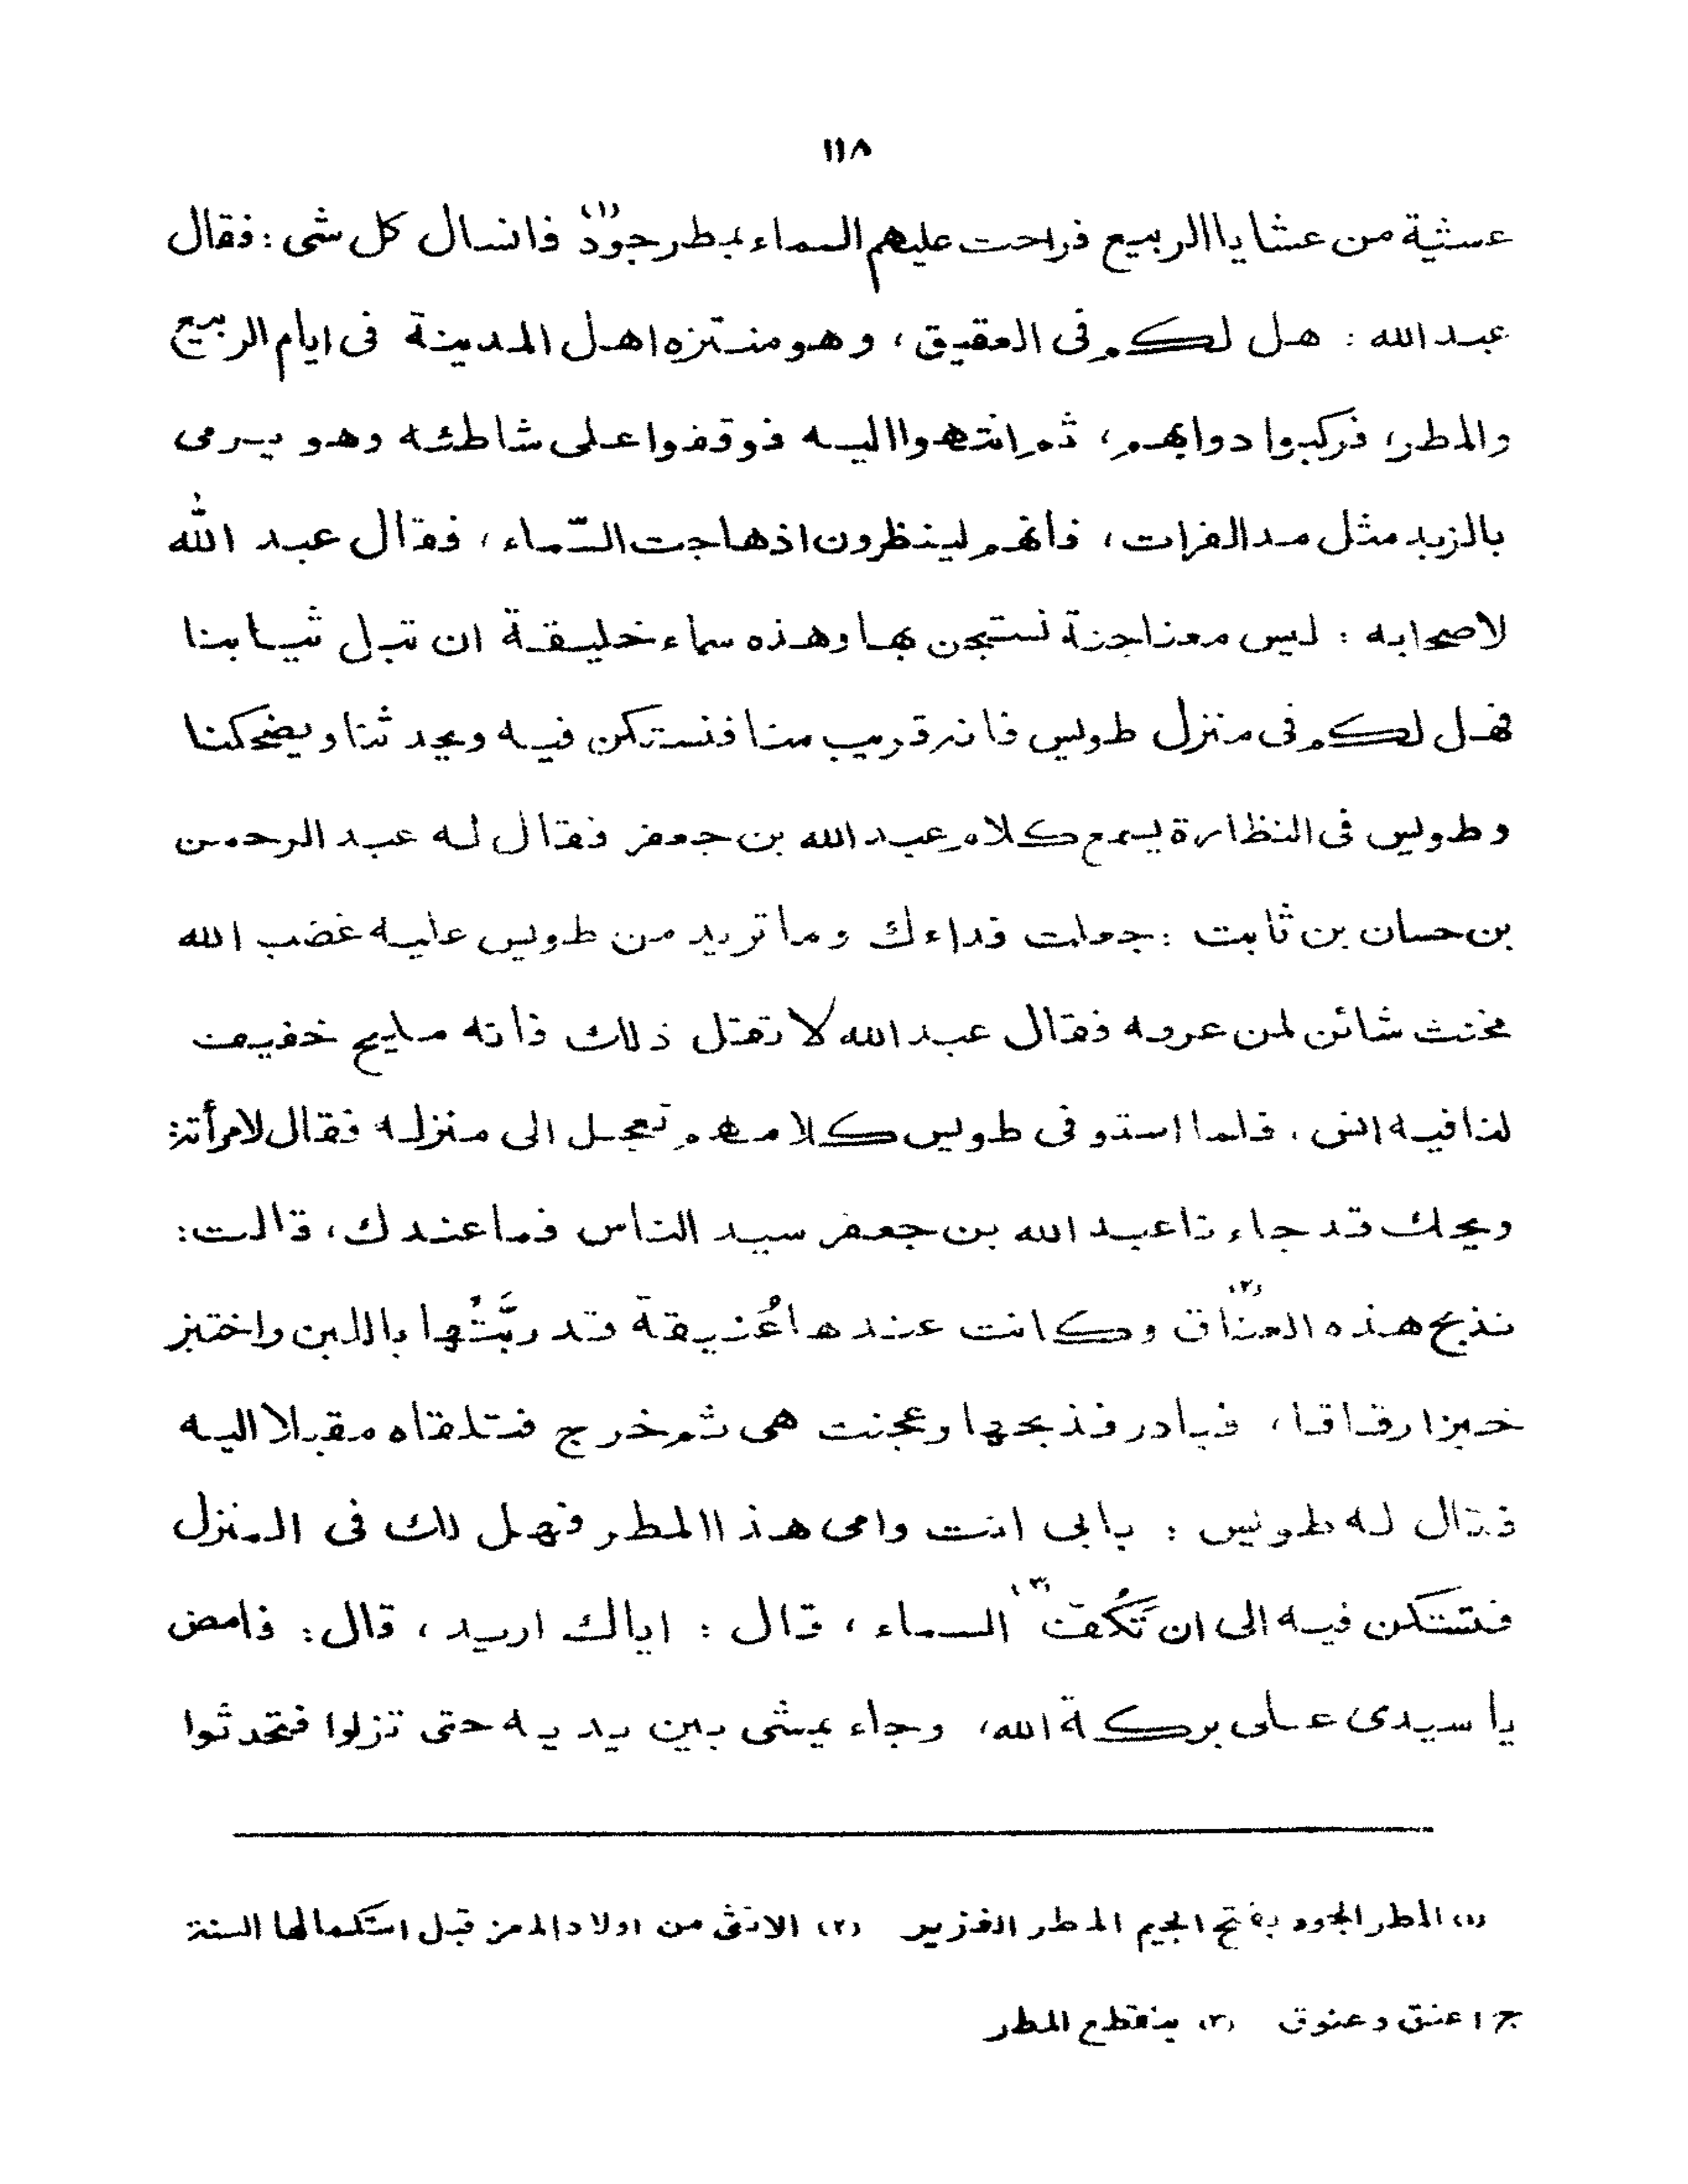 ١١٨
عشية من عشايا الربيع فراحت عليهم السماء بمطر جود (١) فانسال كل شى : فقال
عبد الله : هل لكم فى العقيق ، وهو منتزه اهل المدينة فى ايام الربيع
والمطر، فركبوا دوابهم، ثم انتهوا اليه فوقفوا على شاطئه وهو يرمى
بالزبد مثل مد الفرات ، فانهم لينظرون اذ هاجت السّماء ، فقال عبد الله
لاصحابه : ليس معنا جنة نستجن بها وهذه سماء خليقة ان تبل ثيابنا
فهل لكم فى منزل طويس فانه قريب منا فنستكن فيه ويحدثنا ويضحكنا
وطويس فى النظارة يسمع كلام عبد الله بن جعفر فقال له عبد الرحمن
بن حسان بن ثابت : جعلت فداءك وما تريد من طويس عليه غضب الله
مخنث شائن لمن عرفه فقال عبد الله لا تقل ذلك فانه مليح خفيف
لنا فيه انس . فلما استوفى طويس كلامهم تعجل الى منزله فقال لامرأته:
ويحك قد جاءنا عبد الله بن جعفر سيد الناس فما عندك ، قالت :
نذبح هذه العناق (٢) وكانت عندها عُنيقة قد ربَّتْها باللبن واختبز
خبزا رقاقا ، فبادر فذبحها وعجنت هى ثم خرج فتلقاه مقبلا اليه
فقال له طويس : بابى انت وامى هذا المطر فهل لك فى المنزل
فتستكن فيه الى ان تَكُفّ (٣) السماء ، قال : اياك اريد ، قال : فامض
يا سيدى على بركة الله، وجاء يمشى بين يديه حتى نزلوا فتحدثوا
(١) المطر الجود بفتح الجيم المطر الغزير (٢) الانثى من اولاد المعز قبل استكمالها السنة
ج اعنق وعنوق (٣) ينقطع المطر